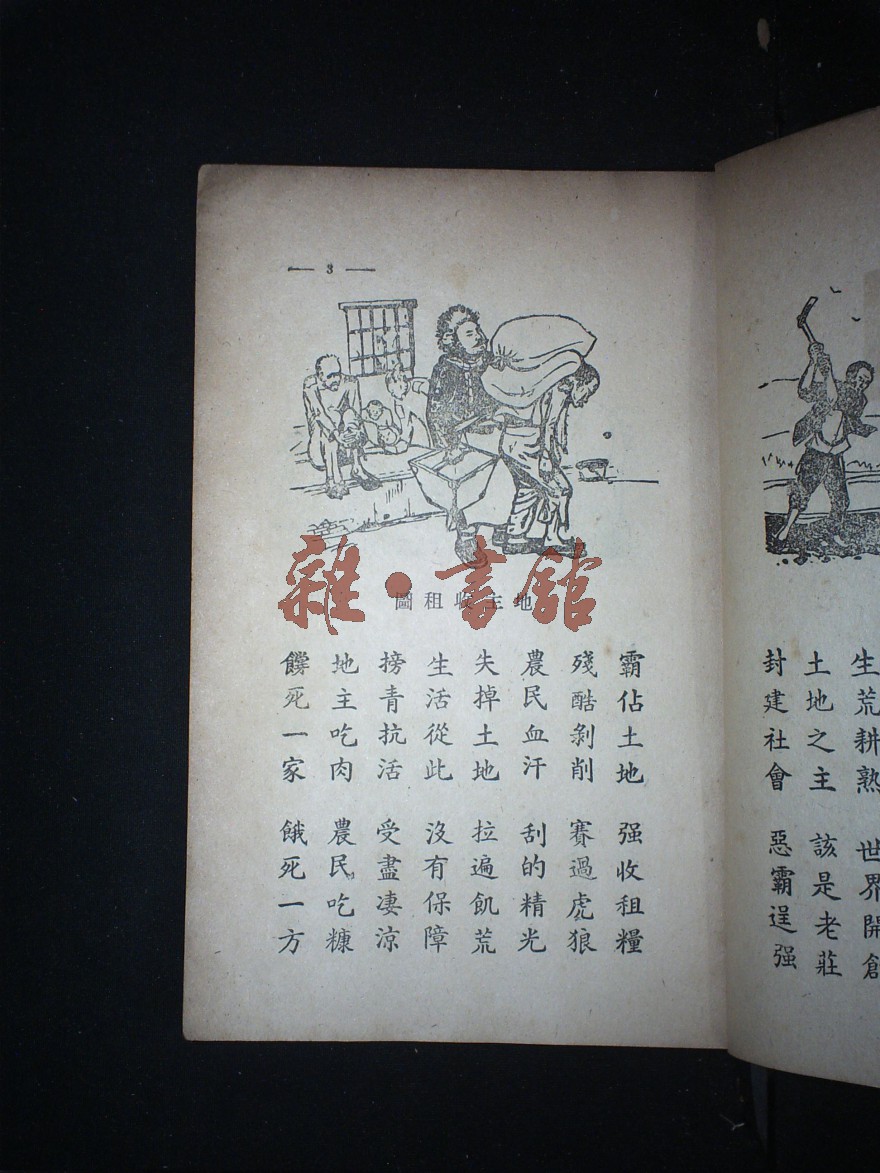 生荒耕熟 世界開創
土地之主 該是老莊
封建社會 惡霸逞强
— 3 —
地主收租圖
雜·書館
霸佔土地 强收租糧
殘酷剝削 賽過虎狼
農民血汗 刮的精光
失掉土地 拉遍飢荒
生活從此 沒有保障
搒青抗活 受盡凄涼
地主吃肉 農民吃糠
饓死一家 餓死一方